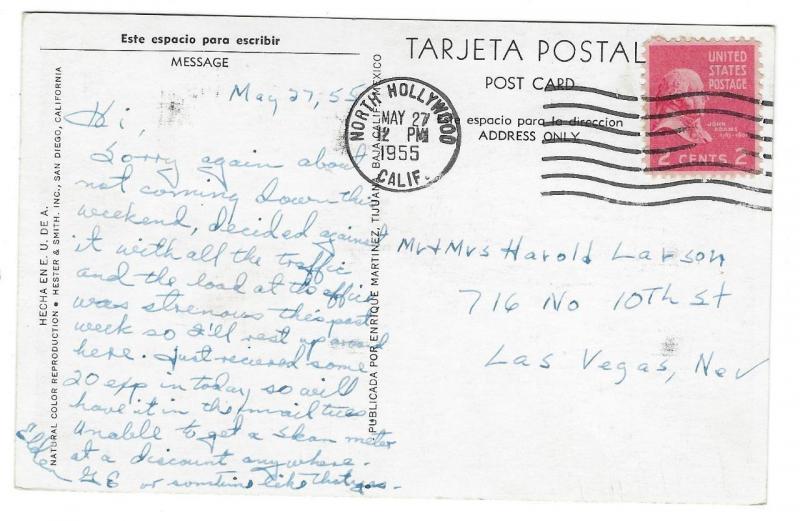 Este espacio para escribir
MESSAGE
May 27, 55
Hi,
Sorry again about
not coming down this
weekend, decided against
it with all the traffic
and the load at the office
was strenous this past
week so I'll rest up around
here. Just recieved some
20 exp in today so will
have it in the mail tues
Unable to get a meter
at a discount anywhere.
GE or somtine like that
Elden
HECHA EN E. U. DE A.
NATURAL COLOR REPRODUCTION • HESTER & SMITH, INC., SAN DIEGO, CALIFORNIA
PUBLICADA POR ENRIQUE MARTINEZ, TIJUANA, BAJA CALIF., MEXICO
TARJETA POSTAL
POST CARD
Este espacio para la direccion
ADDRESS ONLY
NORTH HOLLYWOOD
MAY 27
12 PM
1955
CALIF.
UNITED
STATES
POSTAGE
JOHN
ADAMS
2 CENTS 2
Mr & Mrs Harold Larson
716 No 10Th St
Las Vegas, Nev